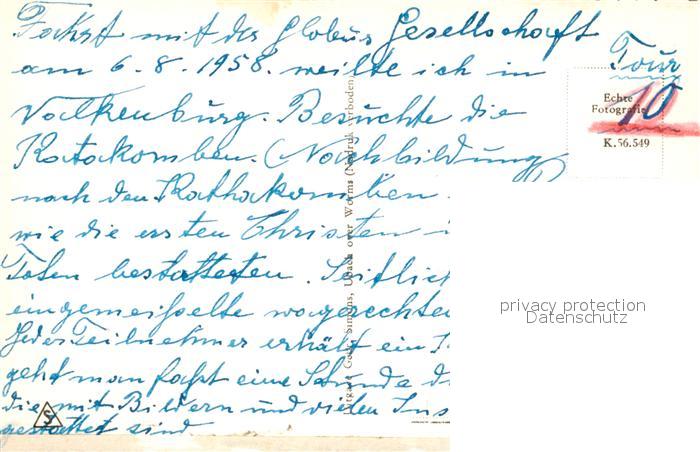 Fahrt mit der Globus Gesellschaft
am 6.8.1958. weilte ich in
Valkenburg. Besuchte die
Katakomben. (Nachbildung)
nach den Kathakomben
wie die ersten Christen
Toten bestatteten. Seitlich
eingemeißelte wagerechte
Jeder Teilnehmer erhält ein
geht man faßt eine Stunde d
die mit Bildern und vielen Ins
gestattet sind
Tour
10
Echte
Fotografie
K.56.549
Simons, Ubach over Worms (Nadruk verboden)
privacy protection
Datenschutz